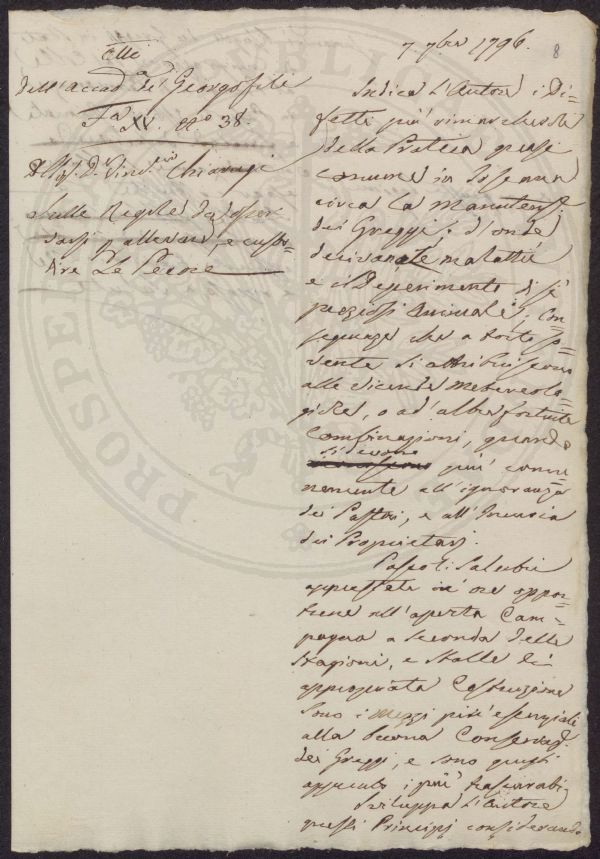 7. 7bre 1796.
8
Atti
dell'accad. de' Georgofili
Fa XV. No 38.
Chiarugi
Sulle Regole da osser-
varsi p. allevare, e custo-
dire Le Pecore
Indica L'Autore i Di=
fetti più rimarchevoli
della Pratica quasi
comune in Toscana
circa la manutenz.
dei Greggi; d'onde
derivano le malattie
e il Deperimento di sì
preziosi Animali; Con=
seguenze che a torto so=
vente si attribuiscono
alle vicende Meteorolo=
giche, o ad' altre fortuite
Combinazioni, quando
si devono
più comu=
nemente all'ignoranza
dei Pastori, e all'Inerzia
dei Proprietarj.
Pascoli Salubri
apprestati in' ore oppor=
tune all'aperta Cam=
pagna a seconda delle
Stagioni, e Stalle di
appropriata Costruzione
sono i Mezzi più essenziali
alla buona Conservaz.
dei Greggi, e sono questi
appunto i più trascurati.
Sviluppa L'Autore
questi Principj considerando